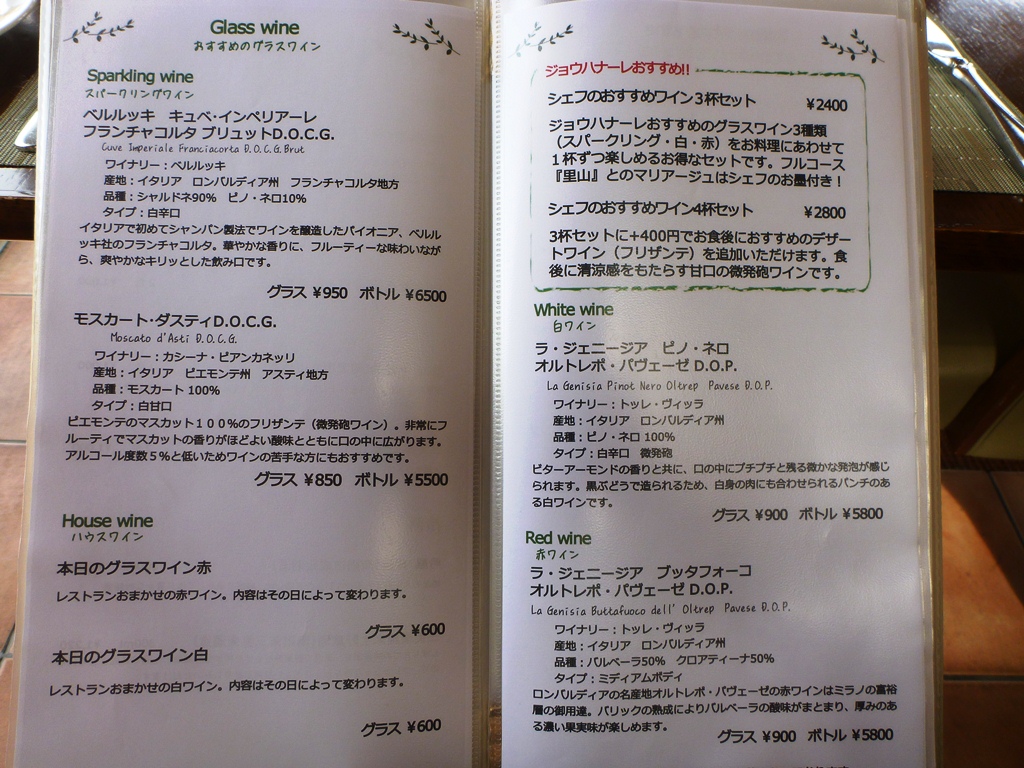 Glass wine
おすすめのグラスワイン
Sparkling wine
スパークリングワイン
ベルルッキ キュベ・インペリアーレ
フランチャコルタ ブリュットD.O.C.G.
Cuve Imperiale Franciacorta D.O.C.G.Brut
ワイナリー：ベルルッキ
産地：イタリア ロンバルディア州 フランチャコルタ地方
品種：シャルドネ90% ピノ・ネロ10%
タイプ：白辛口
イタリアで初めてシャンパン製法でワインを醸造したパイオニア、ベルル
ッキ社のフランチャコルタ。華やかな香りに、フルーティーな味わいなが
ら、爽やかなキリッとした飲み口です。
グラス ¥950 ボトル ¥6500
モスカート・ダスティD.O.C.G.
Moscato d'Asti D.O.C.G.
ワイナリー：カシーナ・ビアンカネッリ
産地：イタリア ピエモンテ州 アスティ地方
品種：モスカート 100%
タイプ：白甘口
ピエモンテのマスカット１００％のフリザンテ（微発砲ワイン）。非常にフ
ルーティでマスカットの香りがほどよい酸味とともに口の中に広がります。
アルコール度数５％と低いためワインの苦手な方にもおすすめです。
グラス ¥850 ボトル ¥5500
House wine
ハウスワイン
本日のグラスワイン赤
レストランおまかせの赤ワイン。内容はその日によって変わります。
グラス ¥600
本日のグラスワイン白
レストランおまかせの白ワイン。内容はその日によって変わります。
グラス ¥600
ジョウハナーレおすすめ!!
シェフのおすすめワイン３杯セット ¥2400
ジョウハナーレおすすめのグラスワイン3種類
（スパークリング・白・赤）をお料理にあわせて
１杯ずつ楽しめるお得なセットです。フルコース
『里山』とのマリアージュはシェフのお墨付き！
シェフのおすすめワイン4杯セット ¥2800
3杯セットに+400円でお食後におすすめのデザー
トワイン（フリザンテ）を追加いただけます。食
後に清涼感をもたらす甘口の微発砲ワインです。
White wine
白ワイン
ラ・ジェニージア ピノ・ネロ
オルトレポ・パヴェーゼ D.O.P.
La Genisia Pinot Nero Oltrep Pavese D.O.P.
ワイナリー：トッレ・ヴィッラ
産地：イタリア ロンバルディア州
品種：ピノ・ネロ 100%
タイプ：白辛口 微発砲
ビターアーモンドの香りと共に、口の中にプチプチと残る微かな発泡が感じ
られます。黒ぶどうで造られるため、白身の肉にも合わせられるパンチのあ
る白ワインです。
グラス ¥900 ボトル ¥5800
Red wine
赤ワイン
ラ・ジェニージア ブッタフォーコ
オルトレポ・パヴェーゼ D.O.P.
La Genisia Buttafuoco dell' Oltrep Pavese D.O.P.
ワイナリー：トッレ・ヴィッラ
産地：イタリア ロンバルディア州
品種：バルベーラ50% クロアティーナ50%
タイプ：ミディアムボディ
ロンバルディアの名産地オルトレポ・パヴェーゼの赤ワインはミラノの富裕
層の御用達。バリックの熟成によりバルベーラの酸味がまとまり、厚みのあ
る濃い果実味が楽しめます。
グラス ¥900 ボトル ¥5800